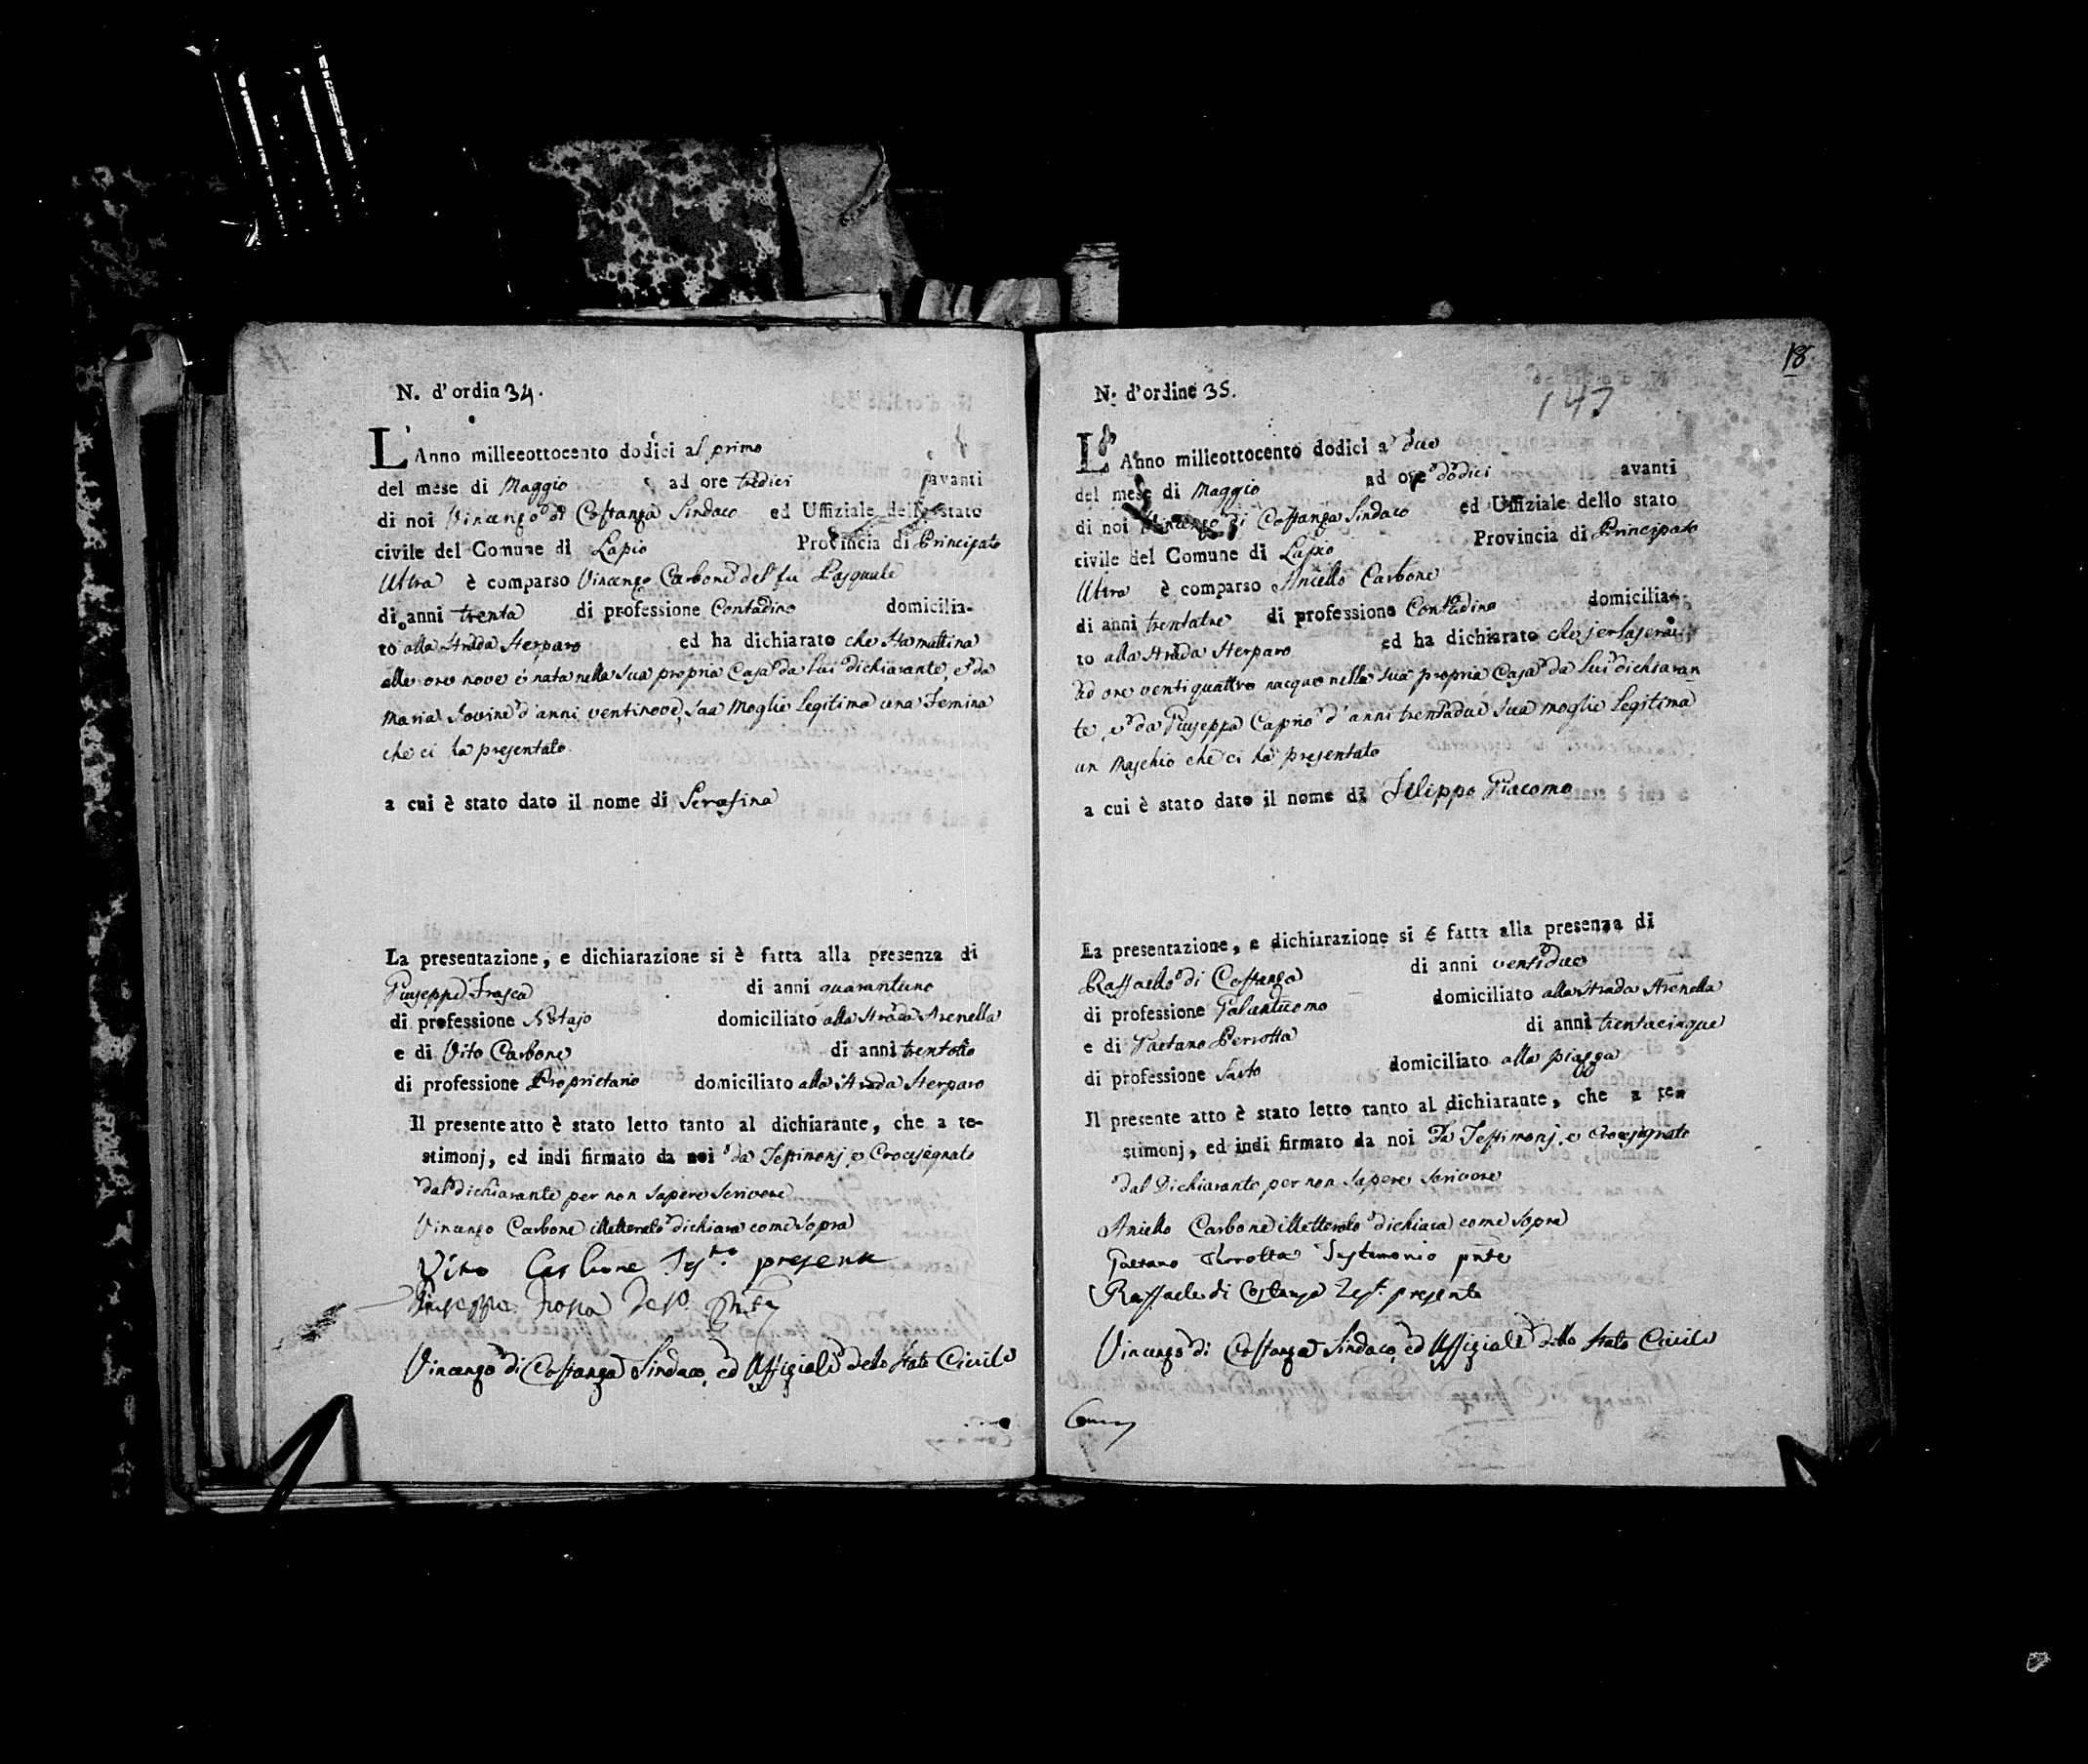 N. d'ordin 34.
L'Anno milleeottocento dodici al primo
del mese di Maggio ad ore tredici avanti
di noi Vincenzo di Costanza Sindaco ed Uffiziale dello stato
civile del Comune di Lapio Provincia di Principato
Ultra è comparso Vincenzo Carbone del fu Pasquale
di anni trenta di professione Contadino domicilia-
to alla Strada Sterparo ed ha dichiarato che sta mattina
alle ore nove è nata nella sua propria Casa da lui dichiarante, e da
Maria Iovine d'anni ventinove, sua Moglie legitima una Femina
che ci ha presentato
a cui è stato dato il nome di Serafina
La presentazione, e dichiarazione si è fatta alla presenza di
Giuseppe Frasca di anni quarantuno
di professione Notajo domiciliato alla Strada Arenella
e di Vito Carbone di anni trentotto
di professione Proprietario domiciliato alla Strada Sterparo
Il presente atto è stato letto tanto al dichiarante, che a te-
stimonj, ed indi firmato da noi da Testimonj, e Crocesegnato
dal dichiarante per non sapere scrivere
Vincenzo Carbone illetterato dichiara come sopra
Vito Carbone presente
Giuseppe
Vincenzo di Costanza Sindaco, ed Uffiziale dello Stato Civile
18
147
N. d'ordine 35.
L'Anno milleottocento dodici a due
del mese di Maggio ad ore dodici avanti
di noi Vincenzo di Costanza Sindaco ed Uffiziale dello stato
civile del Comune di Lapio Provincia di Principato
Ultra è comparso Aniello Carbone
di anni trentatre di professione Contadino domicilia-
to alla Strada Sterparo ed ha dichiarato che jersasera
ad ore ventiquattro nacque nella sua propria Casa da lui dichiaran
te, e da Giuseppa Caprio d'anni trentadue sua moglie legitima
un Maschio che ci ha presentato
a cui è stato dato il nome di Filippo Giacomo
La presentazione, e dichiarazione si è fatta alla presenza di
Raffaele di Costanza di anni ventidue
di professione Galantuomo domiciliato alla Strada Arenella
e di Gaetano Perrotta di anni trentacinque
di professione Sarto domiciliato alla piazza
Il presente atto è stato letto tanto al dichiarante, che a te-
stimonj, ed indi firmato da noi da Testimonj, e Crocesegnato
dal Dichiarante per non sapere scrivere
Aniello Carbone illetterato dichiara come sopra
Gaetano Perrotta Testimonio pnte
Raffaele di Costanza Test. presente
Vincenzo di Costanza Sindaco, ed Uffiziale dello Stato Civile